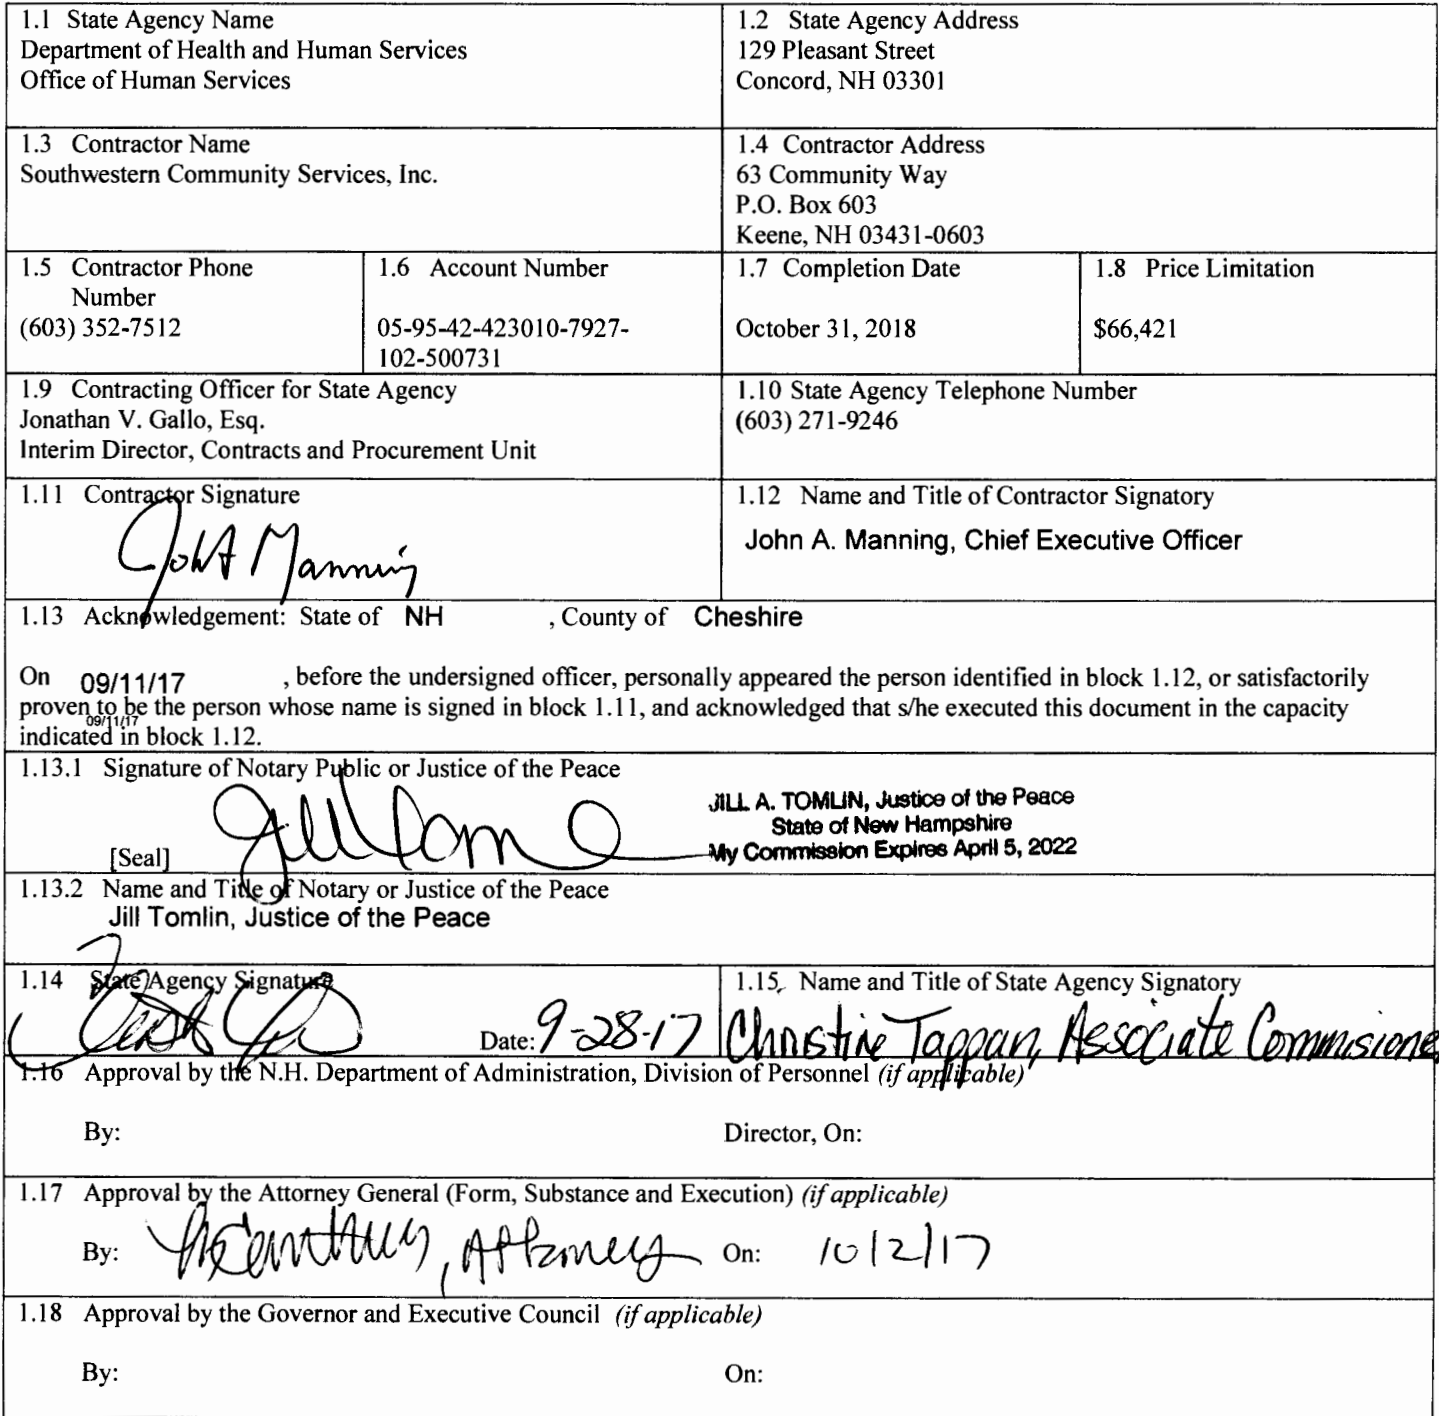 1.1 State Agency Name
Department of Health and Human Services
Office of Human Services
1.2 State Agency Address
129 Pleasant Street
Concord, NH 03301
1.3 Contractor Name
Southwestern Community Services, Inc.
1.4 Contractor Address
63 Community Way
P.O. Box 603
Keene, NH 03431-0603
1.5 Contractor Phone
Number
(603) 352-7512
1.6 Account Number
05-95-42-423010-7927-
102-500731
1.7 Completion Date
October 31, 2018
1.8 Price Limitation
$66,421
1.9 Contracting Officer for State Agency
Jonathan V. Gallo, Esq.
Interim Director, Contracts and Procurement Unit
1.10 State Agency Telephone Number
(603) 271-9246
1.11 Contractor Signature
John A Manning
1.12 Name and Title of Contractor Signatory
John A. Manning, Chief Executive Officer
1.13 Acknowledgement: State of NH , County of Cheshire
On 09/11/17 , before the undersigned officer, personally appeared the person identified in block 1.12, or satisfactorily
proven to be the person whose name is signed in block 1.11, and acknowledged that s/he executed this document in the capacity
09/11/17
indicated in block 1.12.
1.13.1 Signature of Notary Public or Justice of the Peace
JILL A. TOMLIN, Justice of the Peace
State of New Hampshire
My Commission Expires April 5, 2022
[Seal]
1.13.2 Name and Title of Notary or Justice of the Peace
Jill Tomlin, Justice of the Peace
1.14 State Agency Signature
Date: 9-28-17
1.15 Name and Title of State Agency Signatory
Christine Tappan, Associate Commisione
1.16 Approval by the N.H. Department of Administration, Division of Personnel (if applicable)
By: Director, On:
1.17 Approval by the Attorney General (Form, Substance and Execution) (if applicable)
By: , Attorney On: 10/2/17
1.18 Approval by the Governor and Executive Council (if applicable)
By: On: